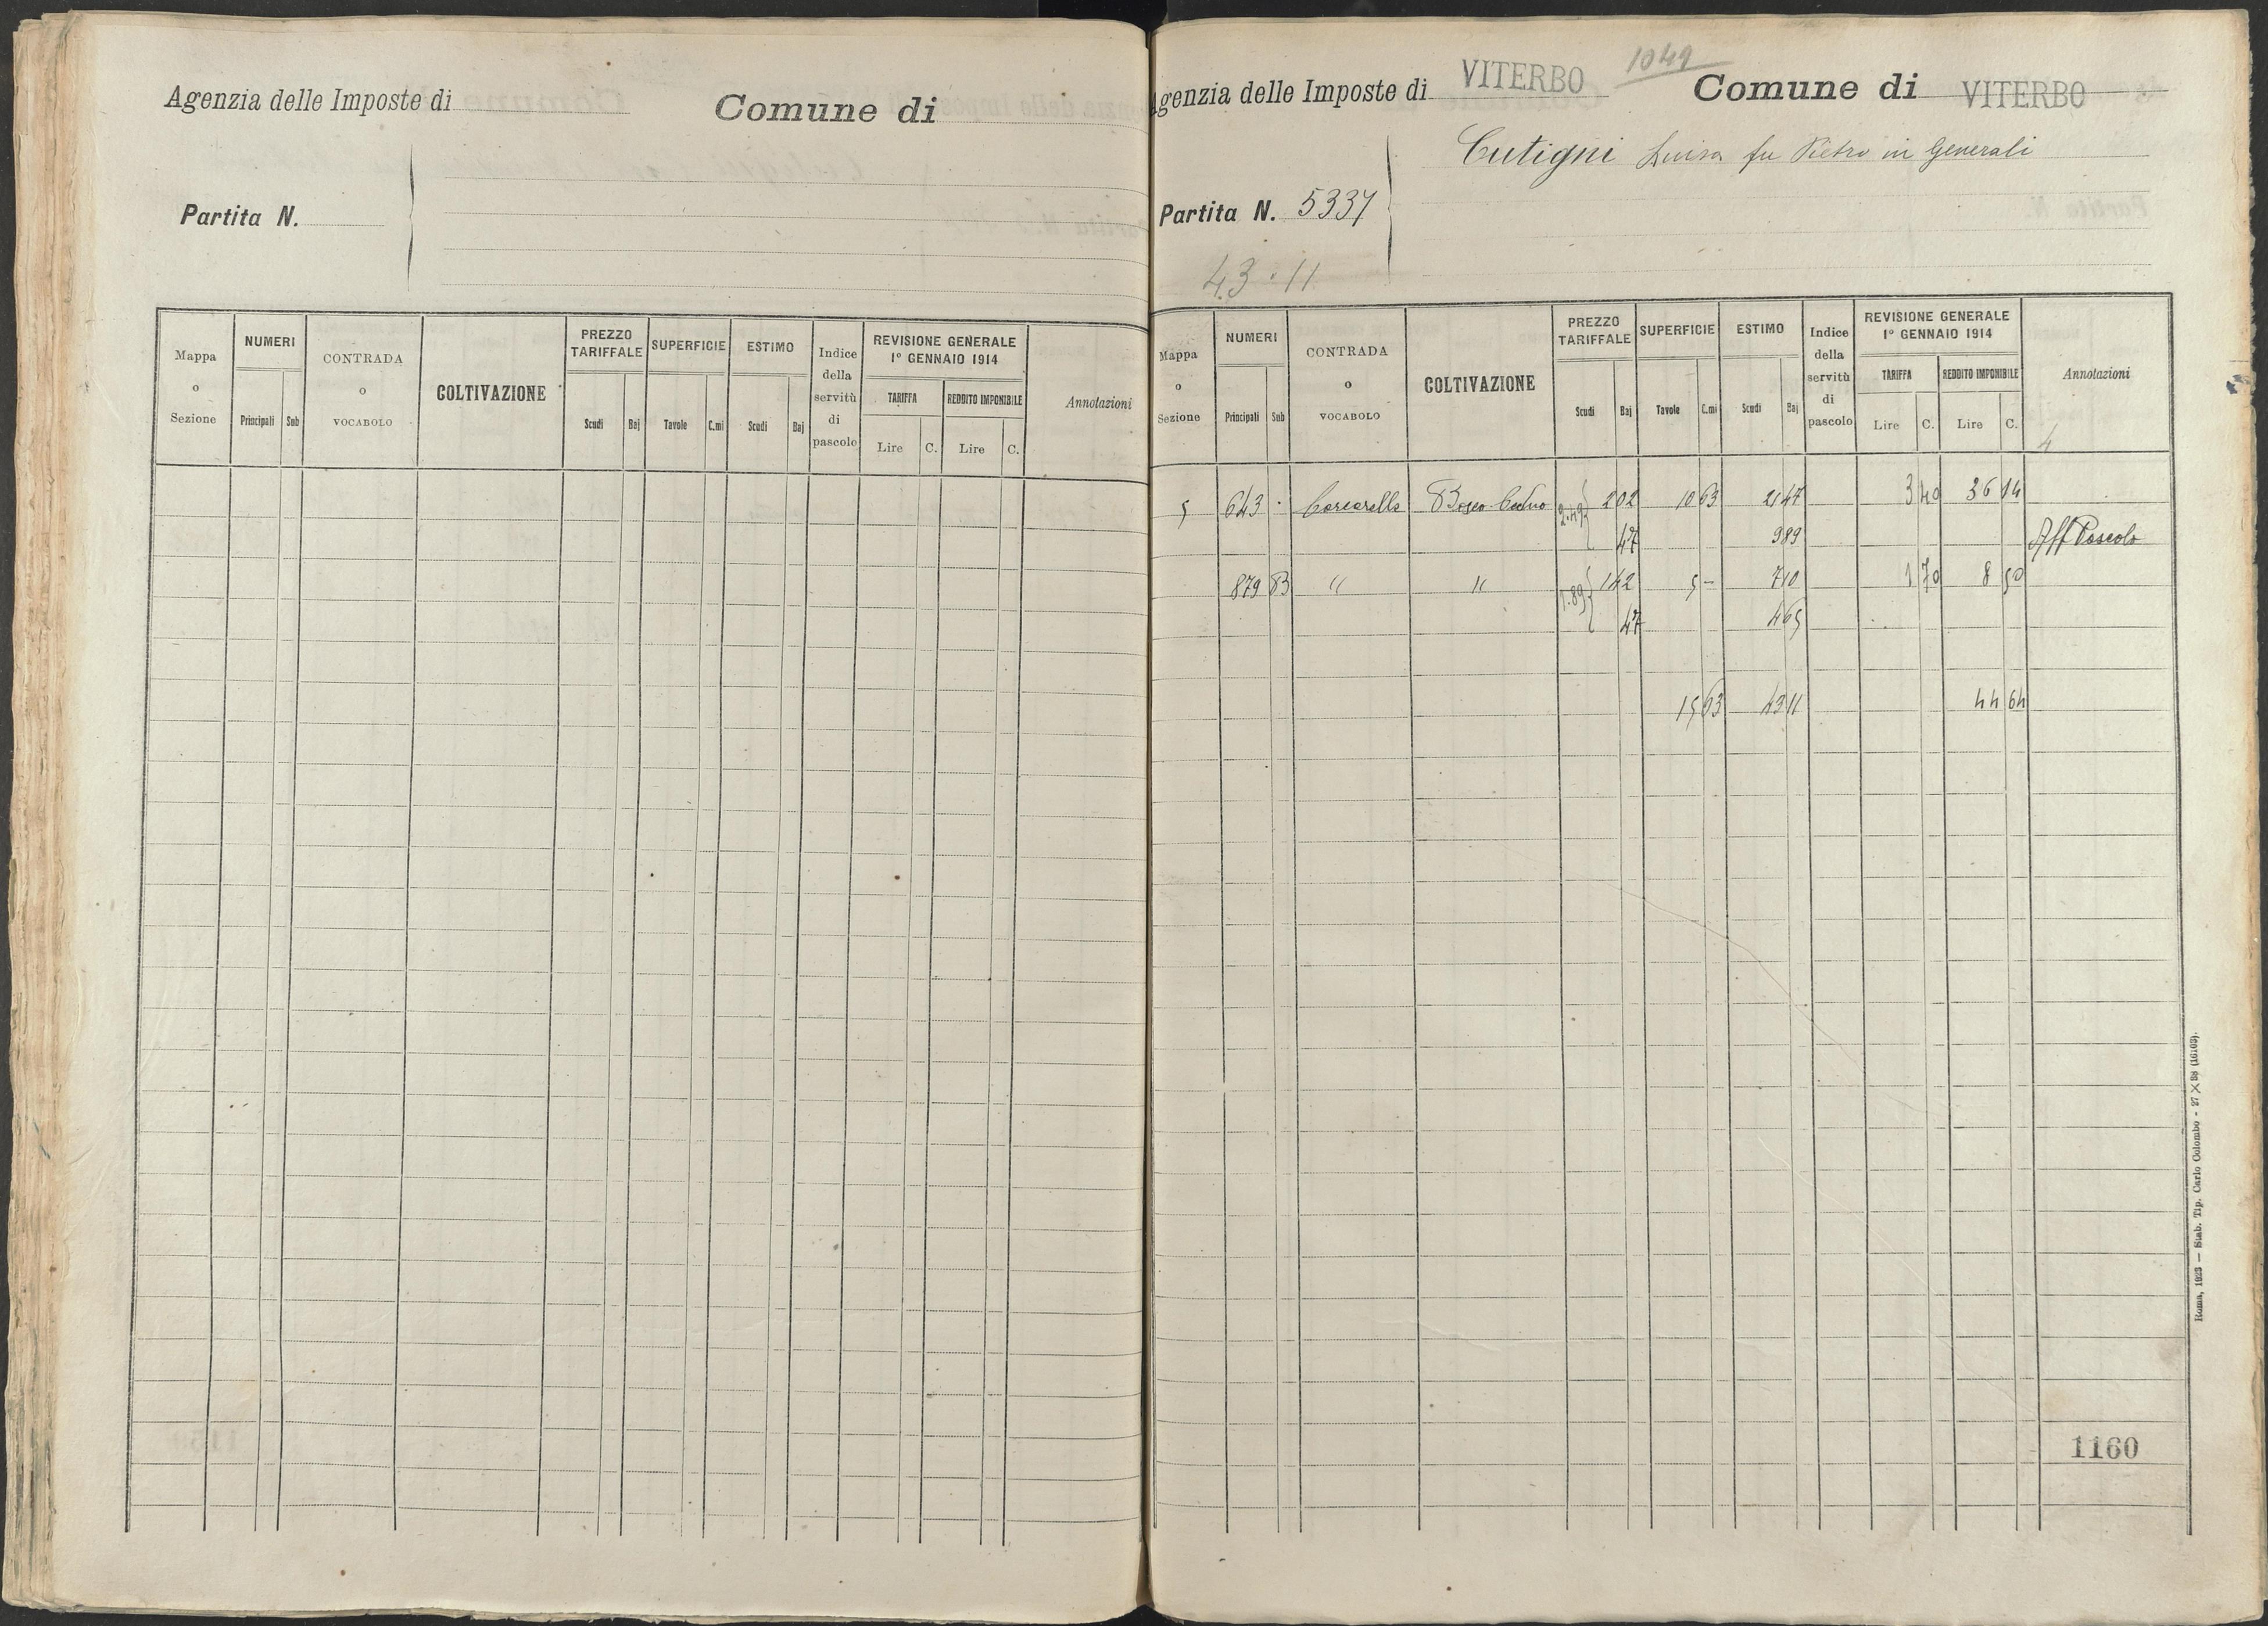 Agenzia delle Imposte di
Comune di
Partita N.
Mappa o Sezione
NUMERI
Principali Sub
CONTRADA o VOCABOLO
COLTIVAZIONE
PREZZO TARIFFALE
Scudi Baj
SUPERFICIE
Tavole C.mi
ESTIMO
Scudi Baj
Indice della servitù di pascolo
REVISIONE GENERALE
1° GENNAIO 1914
TARIFFA
Lire C.
REDDITO IMPONIBILE
Lire C.
Annotazioni
1049
Agenzia delle Imposte di VITERBO Comune di VITERBO
Cutigni Luisa fu Pietro in Generali
Partita N. 5337
43.11
Mappa o Sezione
NUMERI
Principali Sub
CONTRADA o VOCABOLO
COLTIVAZIONE
PREZZO TARIFFALE
Scudi Baj
SUPERFICIE
Tavole C.mi
ESTIMO
Scudi Baj
Indice della servitù di pascolo
REVISIONE GENERALE
1° GENNAIO 1914
TARIFFA
Lire C.
REDDITO IMPONIBILE
Lire C.
Annotazioni
4
5 643 Carcarella Bosco Ceduo 2.49 2 02 10 63 21 47 3 40 36 14
47 9 89 Aff Pascolo
879 B " " 1.89 1 42 5 - 7 10 1 70 8 50
47 4 65
15 63 43 11 44 64
1160
Roma, 1923 — Stab. Tip. Carlo Colombo - 27 × 38 (16103).